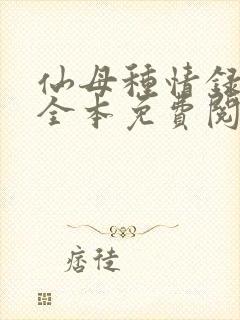 仙母種情録
全本免費閱
痞徒